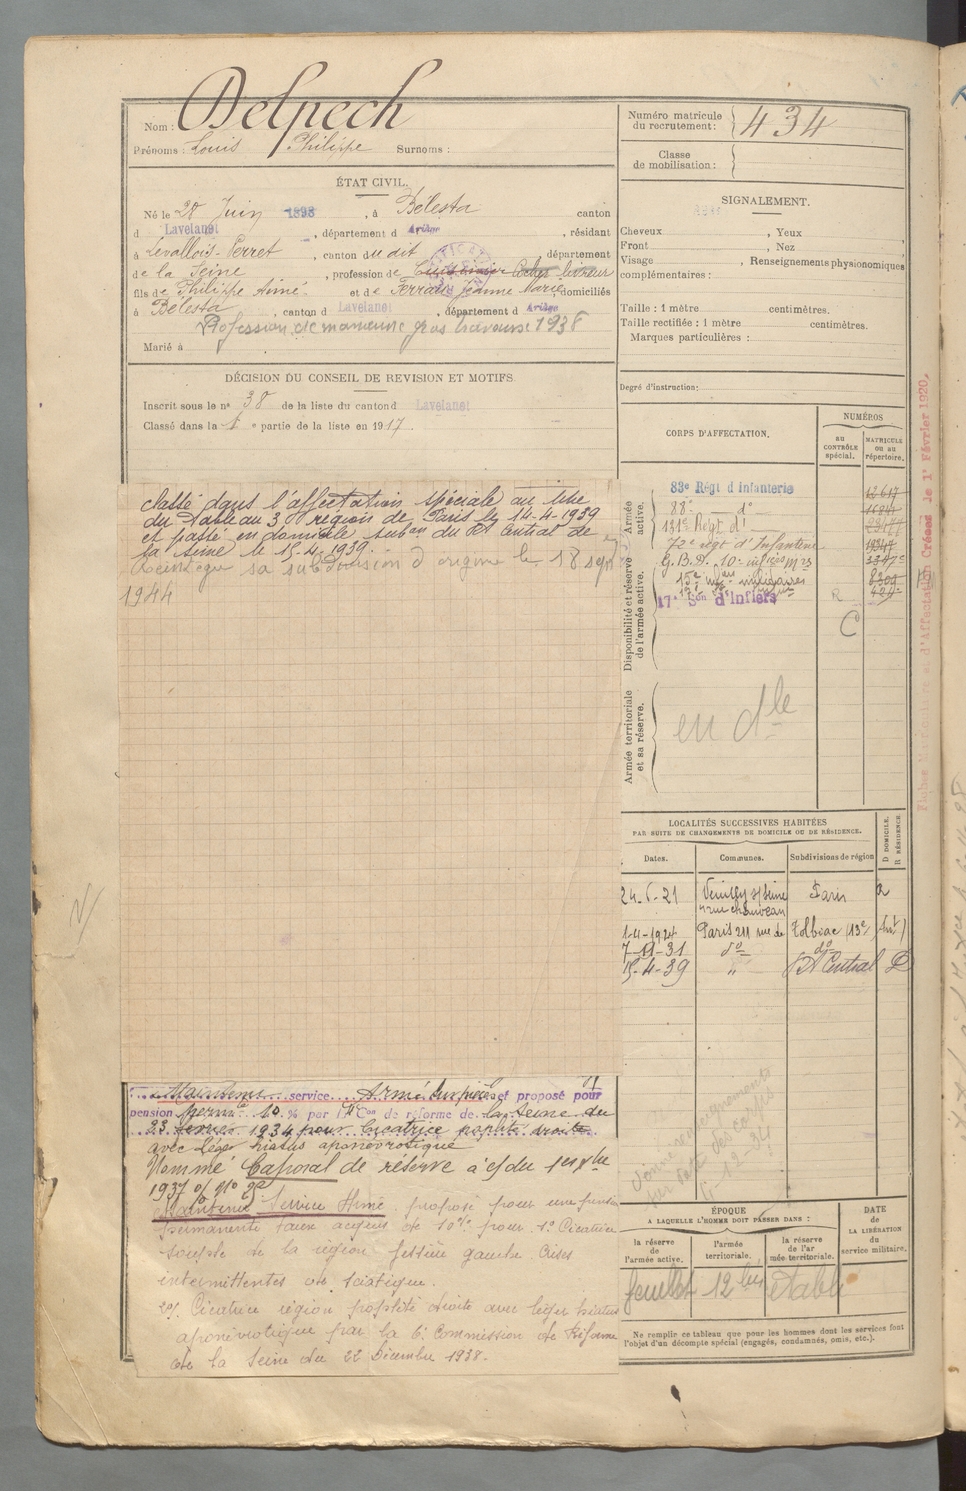 Nom : Delpech
Prénoms : Louis Philippe Surnoms :
Numéro matricule du recrutement : 434
Classe de mobilisation :
ÉTAT CIVIL.
Né le 28 Juin 1898, à Bélesta canton
d Lavelanet, département d Ariège, résidant
à Levallois-Perret, canton du dit département
de la Seine, profession de Cuisinier Cocher livreur
fils de Philippe Aimé et de Ferrail Jeanne Marie, domiciliés
à Bélesta, canton d Lavelanet, département d Ariège
Profession de manœuvre gros travaux 1938
Marié à
SIGNALEMENT.
Cheveux , Yeux ,
Front , Nez ,
Visage , Renseignements physionomiques
complémentaires :
Taille : 1 mètre centimètres.
Taille rectifiée : 1 mètre centimètres.
Marques particulières :
Degré d'instruction:
DÉCISION DU CONSEIL DE REVISION ET MOTIFS
Inscrit sous le nº 38 de la liste du canton d Lavelanet
Classé dans la 1 e partie de la liste en 1917.
classé dans l'affectation spéciale au titre
du Tableau 3 région de Paris le 14-4-1939
et passé en domicile subon du Rt Central de
la Seine le 15-4-1939.
Réintègre sa subdivision d'origine le 18 sept
1944
CORPS D'AFFECTATION.
NUMÉROS
au CONTRÔLE spécial.
MATRICULE ou au répertoire.
Armée active.
83e Régt d'Infanterie 12617
88e — do —
131e Régt d'I
72e régt d'Infanterie
G.B.D. 10e infres Mres
15e infers militaires
17e Son d'Infiers
R
C
Disponibilité et réserve de l'armée active.
Armée territoriale et sa réserve.
en dle
Fiches Matriculaire et d'Affectation Créées le 1er Février 1920.
LOCALITÉS SUCCESSIVES HABITÉES
PAR SUITE DE CHANGEMENTS DE DOMICILE OU DE RÉSIDENCE.
Dates. Communes. Subdivisions de région D DOMICILE. R RÉSIDENCE
24-6-21 Neuilly s/Seine Paris R
rue Chauveau
1-4-1924 Paris 211 rue de Tolbiac (13e)
7-11-31 do do
15-4-39 " Rt Central D
Maintenu service Armé et proposé pour
pension permte 10 % par la Con de réforme de la Seine du
23 1934 pour Cicatrice poplité droite
avec léger hiatus aponévrotique
Nommé Caporal de réserve à c/ du 1er
1937
Maintenu Service Armé proposé pour une pension
permanente taux acquis de 10% pour 1º Cicatrice
souple de la région fessière gauche Crises
intermittentes de sciatique.
2º/ Cicatrice région poplité droite avec léger hiatus
aponévrotique par la 6e Commission de Réforme
de la Seine du 22 Décembre 1938.
Donné renseignements
sur date des corps
6-12-34
ÉPOQUE
A LAQUELLE L'HOMME DOIT PASSER DANS :
la réserve de l'armée active.
l'armée territoriale.
la réserve de l'ar mée territoriale.
DATE de LA LIBÉRATION du service militaire.
feuillet 12 bis établi
Ne remplir ce tableau que pour les hommes dont les services font
l'objet d'un décompte spécial (engagés, condamnés, omis, etc.).